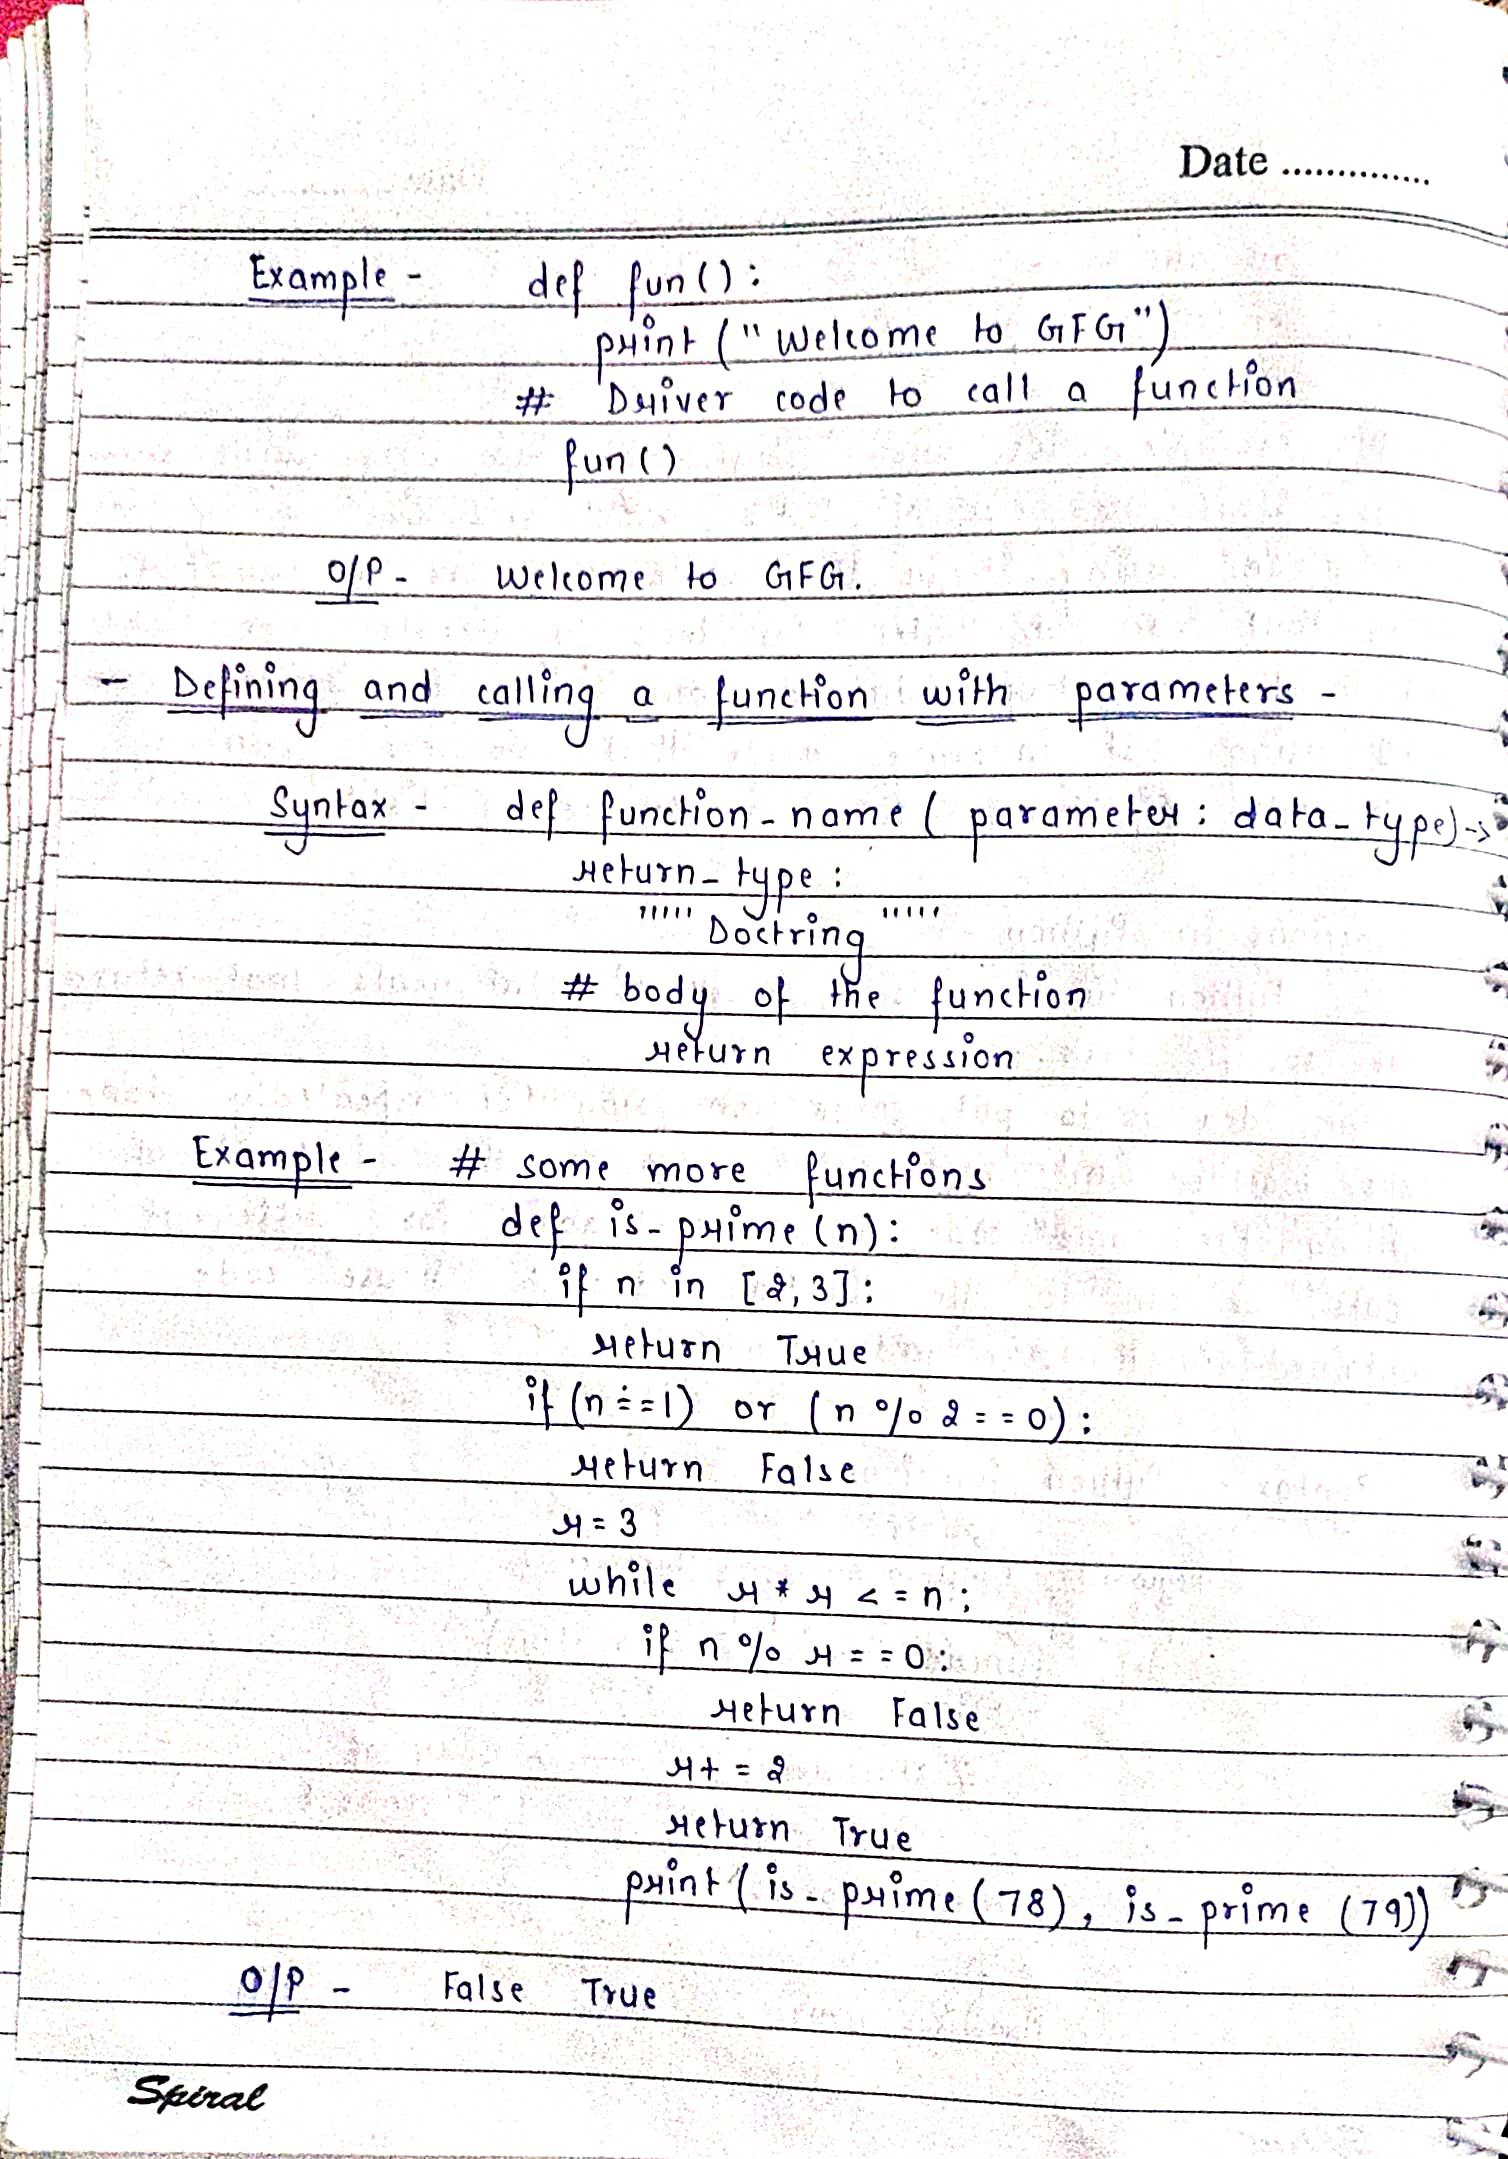 Date ..............
Example - def fun():
print ("Welcome to GFG")
# Driver code to call a function
fun()
O/P - Welcome to GFG.
- Defining and calling a function with parameters -
Syntax - def function_name ( parameter : data_type) ->
return_type :
""" Doctring """
# body of the function
return expression
Example - # some more functions
def is_prime (n):
if n in [2, 3]:
return True
if (n == 1) or (n % 2 == 0):
return False
r = 3
while r * r <= n:
if n % r == 0:
return False
r + = 2
return True
print ( is_prime (78), is_prime (79))
O/P - False True
Spiral